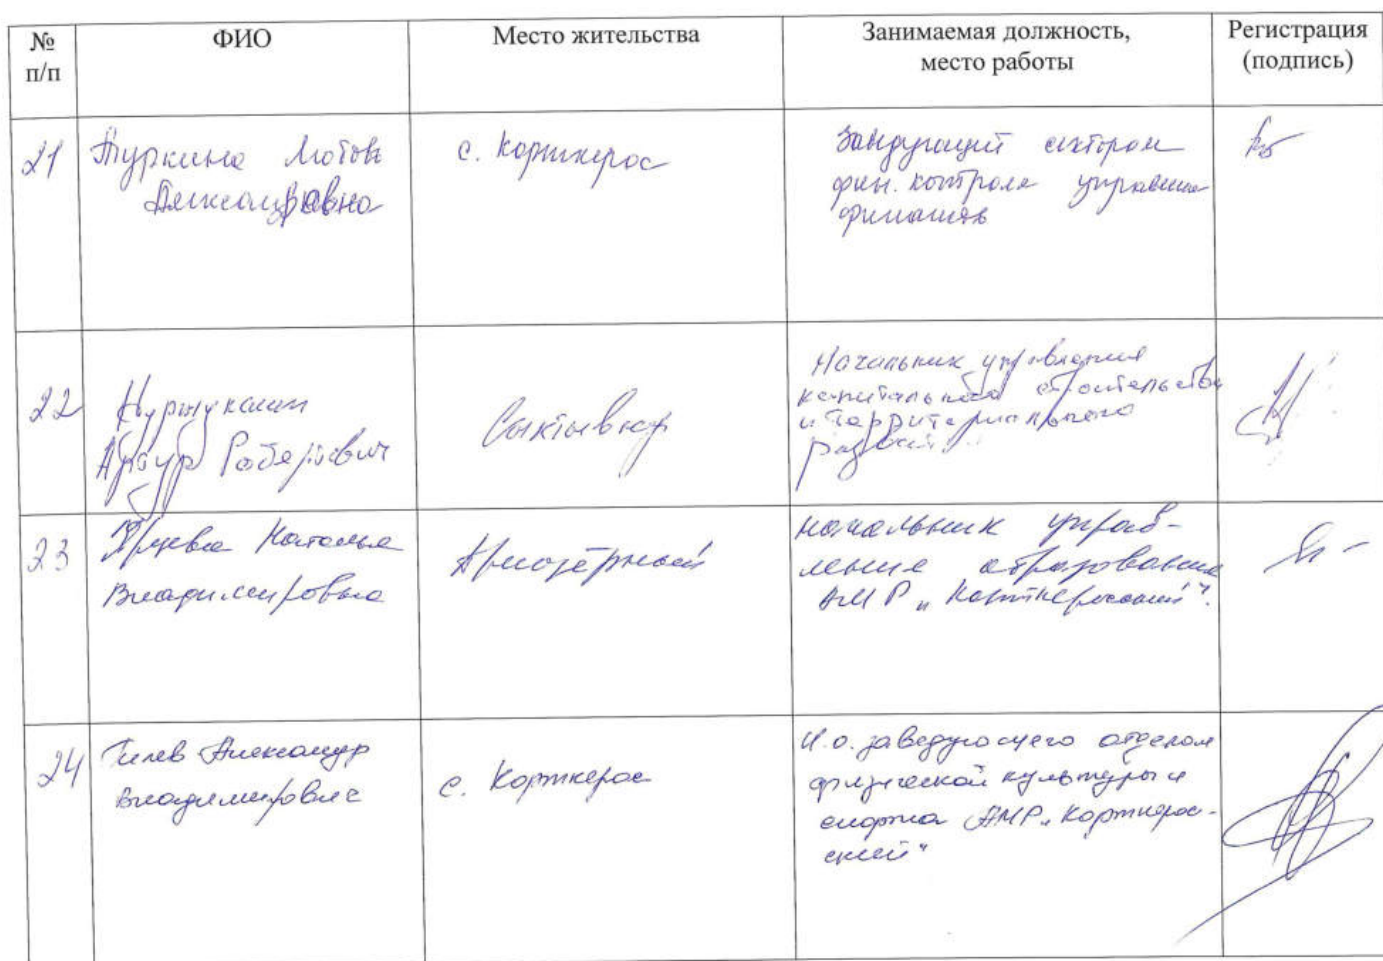 № п/п
ФИО
Место жительства
Занимаемая должность, место работы
Регистрация (подпись)
21
Туркина Любовь
Александровна
с. Корткерос
Заведующий сектором
фин. контроля управления
финансов
22
Артур Робертович
Сыктывкар
Начальник управления
капитального строительства
и территориального
развития
23
Наталья
Владимировна
Приозёрный
начальник управ-
ления образования
АМР "Корткеросский".
24
Гилев Александр
Владимирович
с. Корткерос
И.о. заведующего отделом
физической культуры и
спорта АМР "Корткерос-
ский"